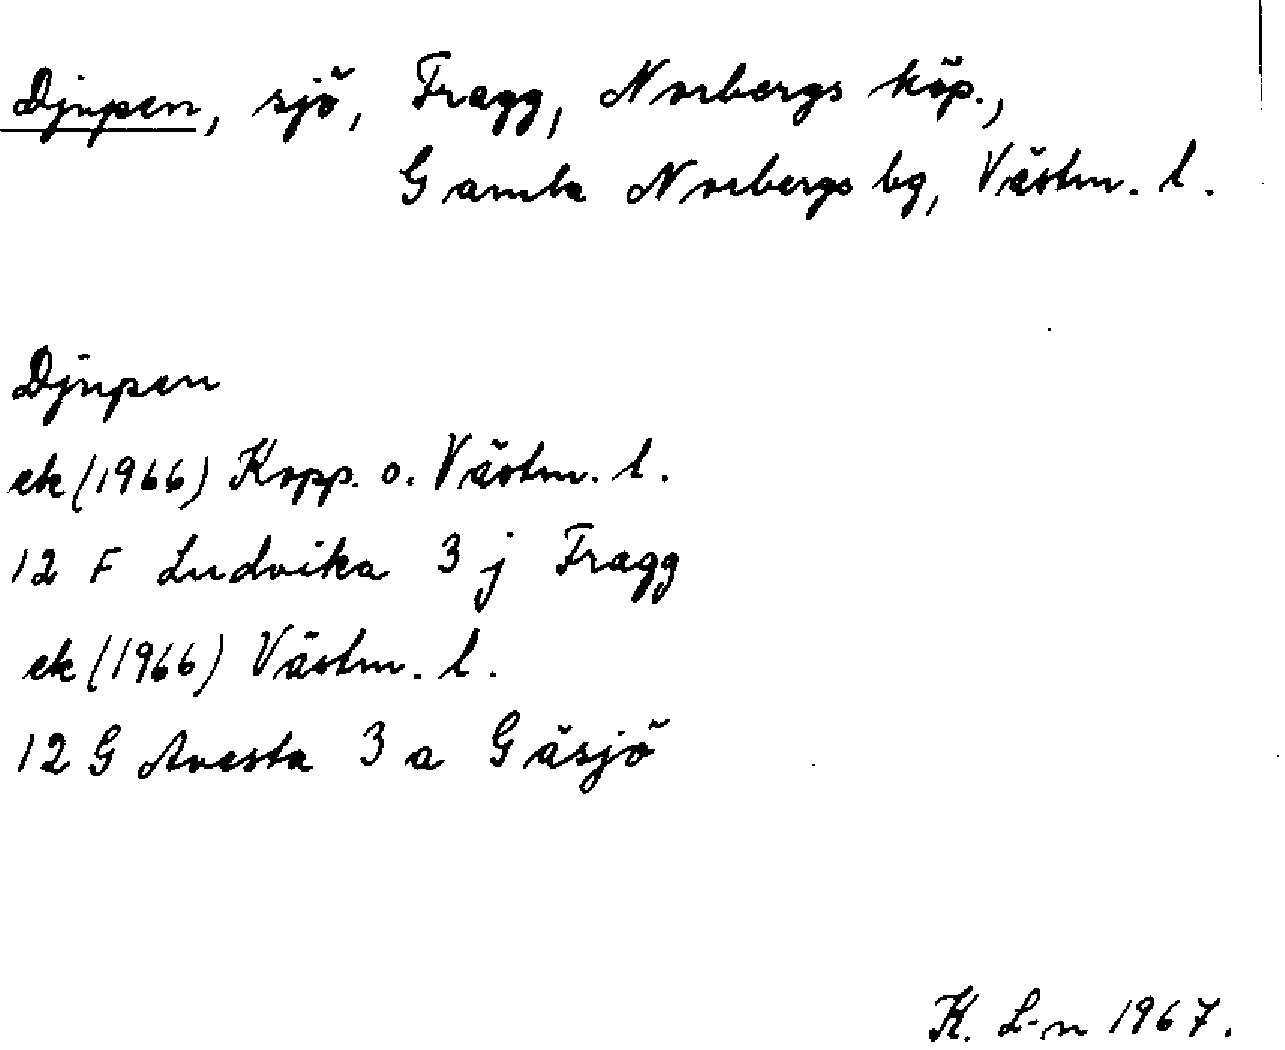 Djupen, sjö, Fragg, Norbergs köp.,
Gamla Norbergs bg, Västm. l.
Djupen
ek (1966) Kopp. o. Västm. l.
12 F Ludvika 3 j Fragg
ek (1966) Västm. l.
12 G Avesta 3 a Gäsjö
K. L-n 1967.